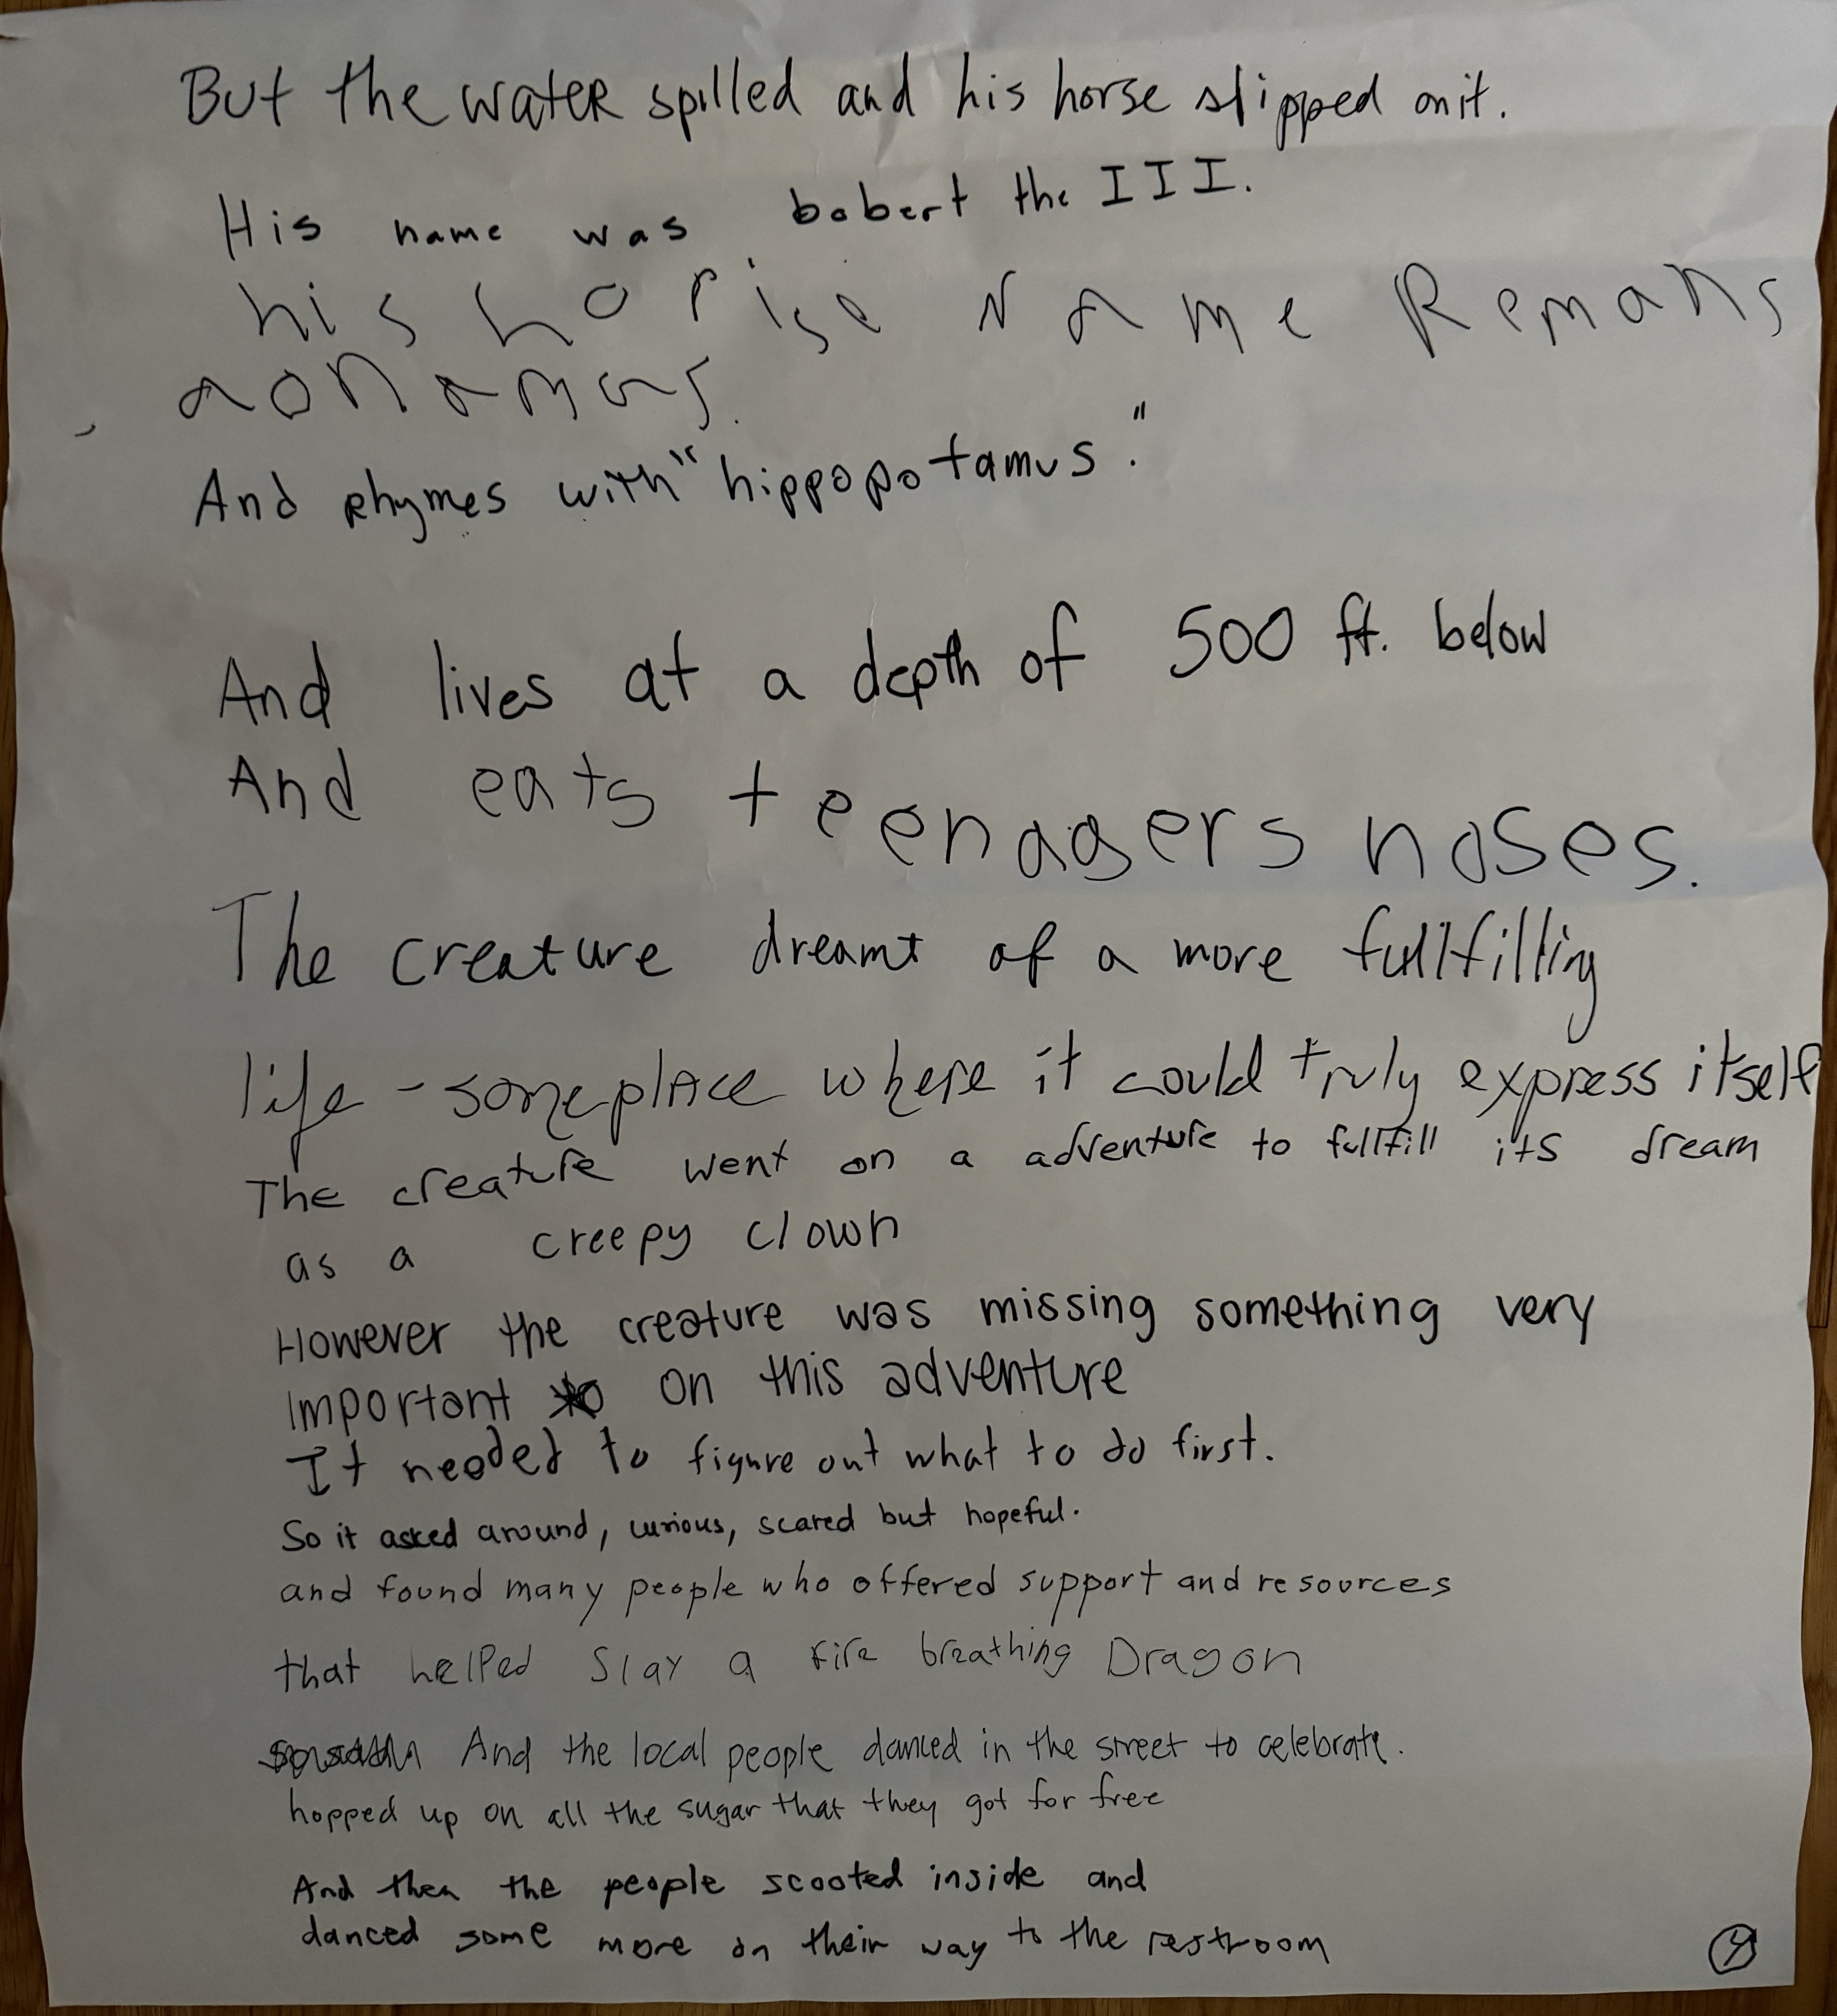 But the water spilled and his horse slipped on it.
His name was bobert the III.
his horise Name Remans
aonamus.
And rhymes with "hippopotamus."
And lives at a depth of 500 ft. below
And eats teenagers noses.
The creature dreamt of a more fullfilling
life - someplace where it could truly express itself
The creature went on a adventure to fullfill its dream
as a creepy clown
However the creature was missing something very
important on this adventure
It needed to figure out what to do first.
So it asked around, curious, scared but hopeful.
and found many people who offered support and resources
that helped slay a fire breathing Dragon
And the local people danced in the street to celebrate.
hopped up on all the sugar that they got for free
And then the people scooted inside and
danced some more on their way to the restroom